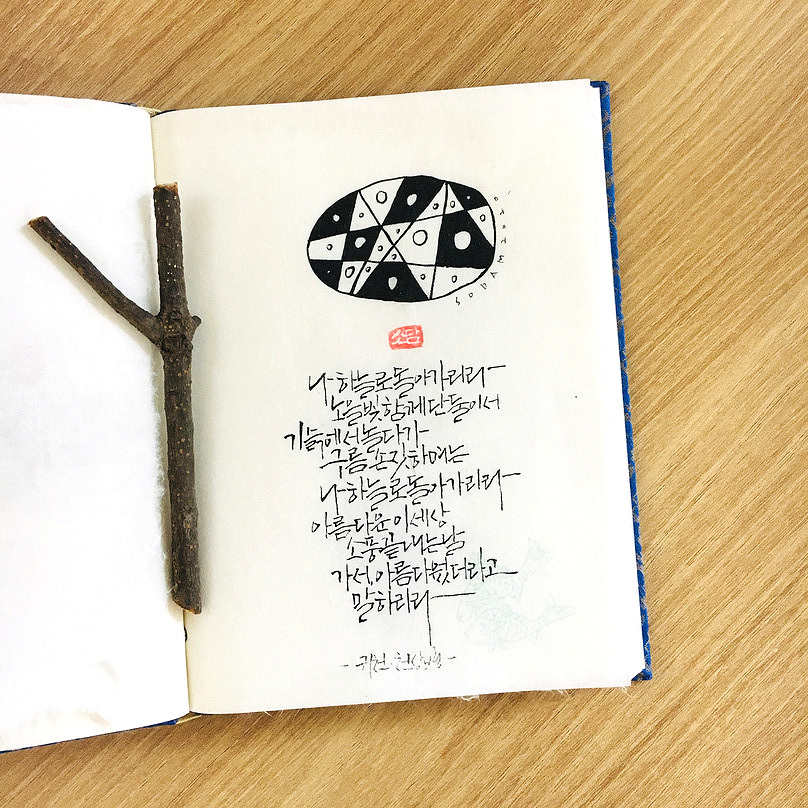 소담
나 하늘로 돌아가리라
노을빛 함께 단 둘이서
기슭에서 놀다가
구름 손짓하며는
나 하늘로 돌아가리라
아름다운 이 세상
소풍 끝내는 날
가서, 아름다웠더라고
말하리라
- 귀천 천상병 -